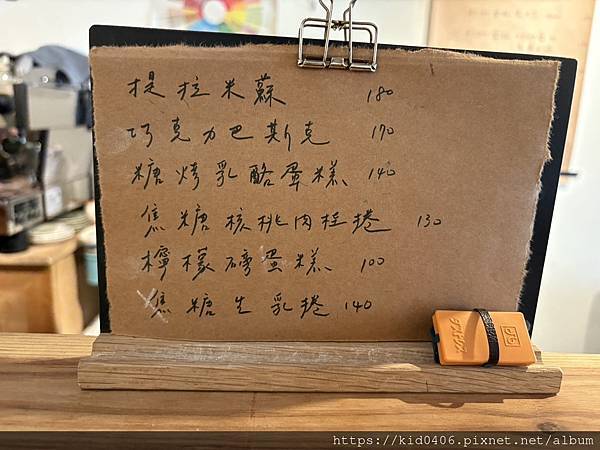 提拉米蘇 180
巧克力巴斯克 170
糖烤乳酪蛋糕 140
焦糖核桃肉桂捲 130
檸檬磅蛋糕 100
焦糖生乳捲 140
https://kid0406.pixnet.net/album